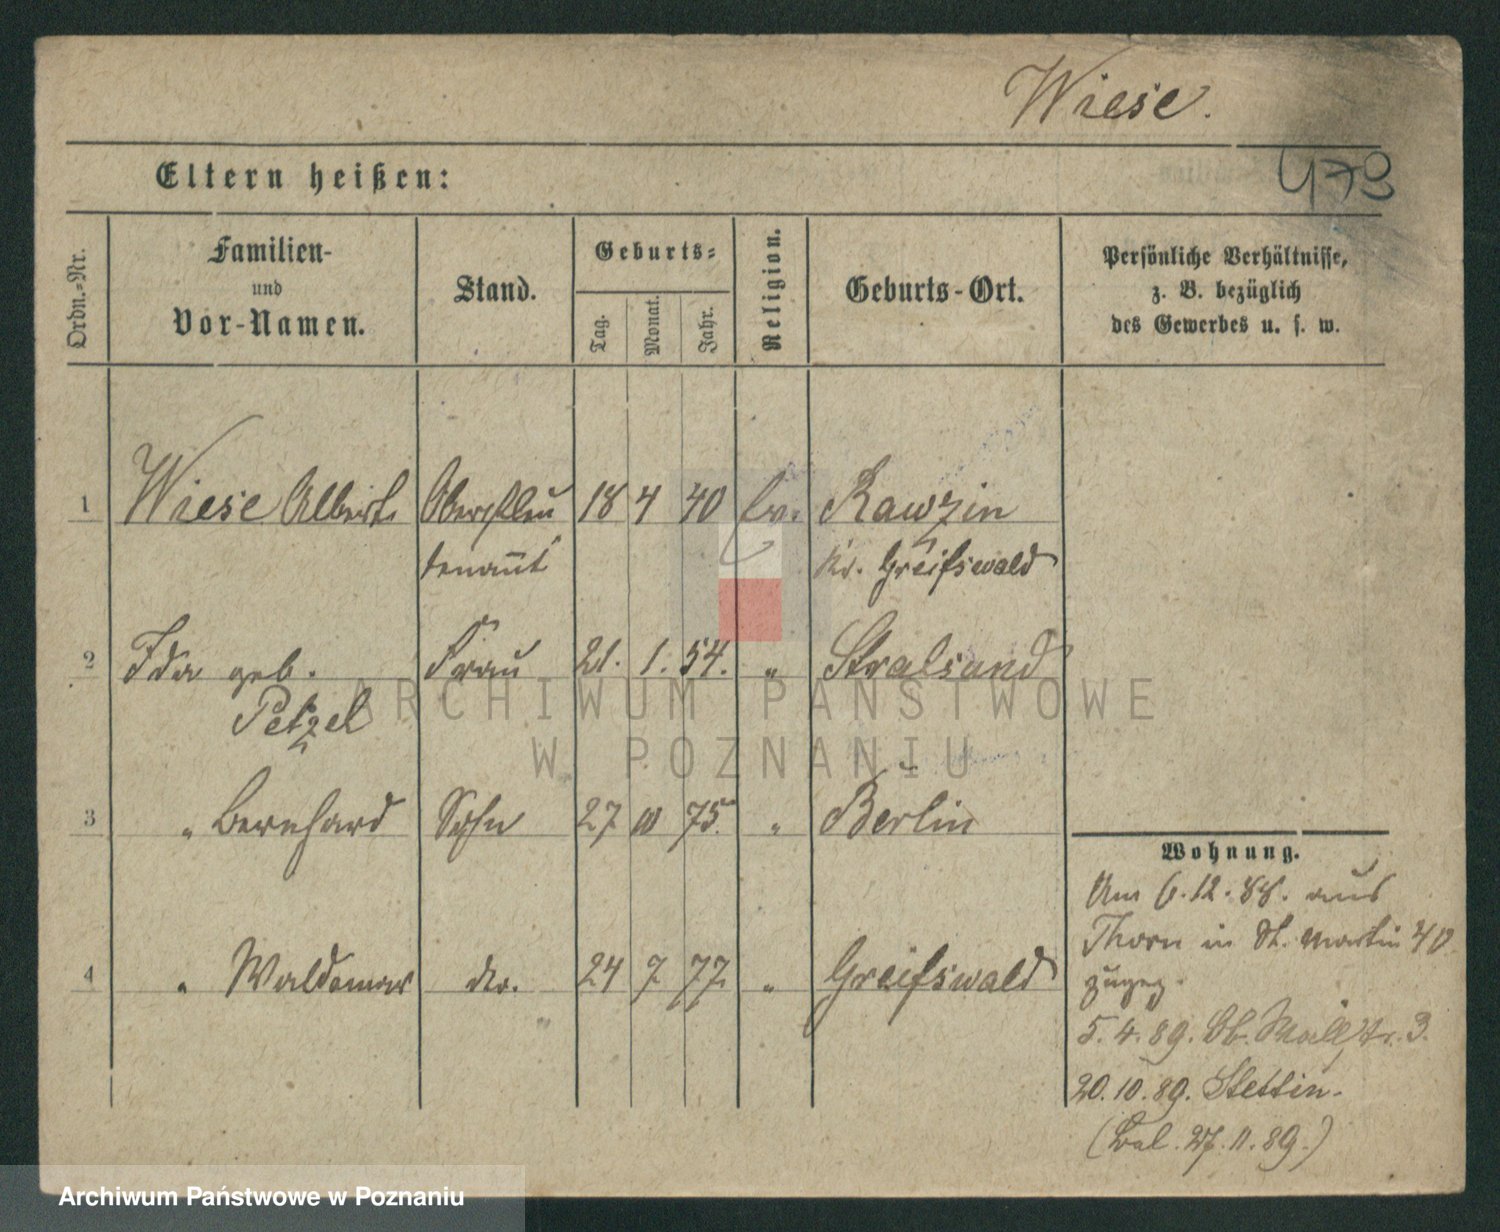 Wiese.
473
Eltern heißen:
Ordn.-Nr.
Familien-
und
Vor-Namen.
Stand.
Geburts-
Tag.
Monat.
Jahr.
Religion.
Geburts-Ort.
Persönliche Verhältnisse,
z. B. bezüglich
des Gewerbes u. s. w.
1 Wiese Albert 18 4 40 Ev. Rawzin
tenant Kr. Greifswald
2 Ida geb. Frau 21. 1. 54. " Stralsund
Petzel
3 " Bernhard Sohn 27 10 75. " Berlin
4 " Waldemar do. 24 7 77 " Greifswald
Wohnung.
Am 6.12.88. aus
Thorn in St. Martin 40
zugez.
5.4.89. Ob. Wallstr. 3.
20.10.89. Stettin.
27.11.89.)
ARCHIWUM PAŃSTWOWE
W POZNANIU
Archiwum Państwowe w Poznaniu